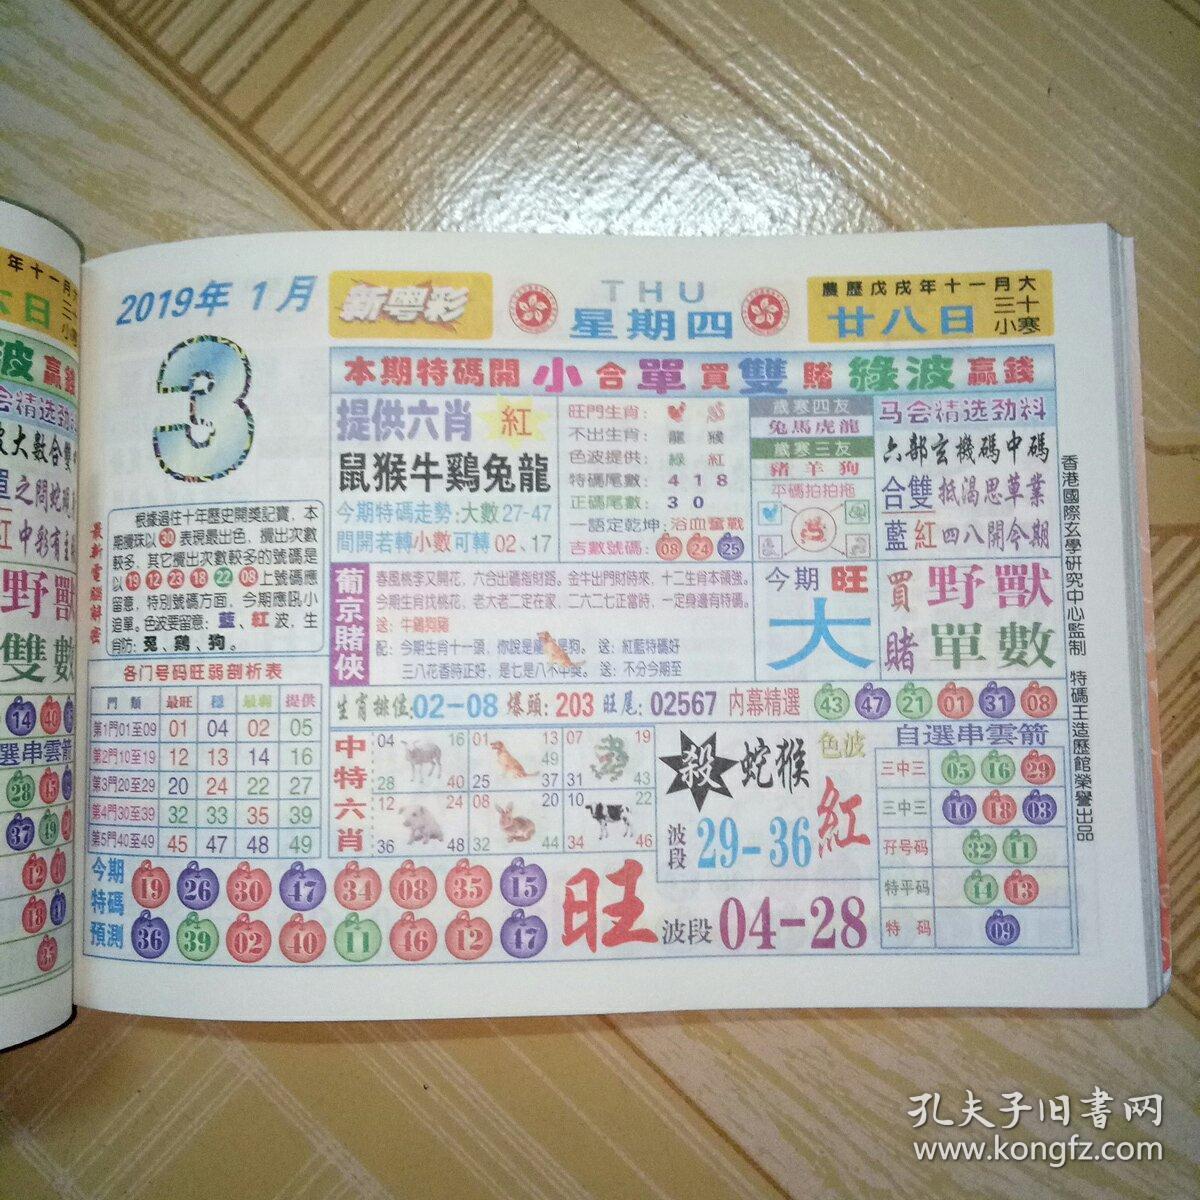 2019年 1月
3
新粤彩
THU
星期四
農歷戊戌年十一月大
廿八日
三十
小寒
本期特碼開 小 合 單 買 雙 賭 綠波 贏錢
提供六肖 紅
鼠猴牛鷄兔龍
今期特碼走勢:大數27-47
間開若轉小數可轉02、17
旺門生肖:
不出生肖: 龍 猴
色波提供: 綠 紅
特碼尾數: 4 1 8
正碼尾數: 3 0
一語定乾坤:浴血奮戰
吉數號碼: 08 24 25
歲寒四友
兔馬虎龍
歲寒三友
豬羊狗
平碼拍拍拖
马会精选劲料
六部玄機碼中碼
合雙 抵渴思草業
藍紅四八開今期
最新電腦解密
根據過往十年歷史開奬記賣，本
期攪珠以 30 表現最出色，攪出次數
較多，其它攪出次數較多的號碼是
以 19 12 23 18 22 09 上號碼應
留意，特別號碼方面，今期應吼小
追單。色波要留意：藍、紅波，生
肖防：兔、鷄、狗。
葡京賭俠
春風桃李又開花，六合出碼指財路。金牛出門財時來，十二生肖本領強。
今期生肖找桃花，老大老二定在家，二六二七正當時，一定身邊有特碼。
送：牛鷄狗豬
配：今期生肖十一頭，你說是龍 是狗。 送：紅藍特碼好
三八花香時正好，是七是八不中奬。 送：不分今期至
今期旺
大
買 野獸
賭 單數
各门号码旺弱剖析表
門 類 最旺 穩 最弱 提供
第1門01至09 01 04 02 05
第2門10至19 12 13 14 16
第3門20至29 20 24 22 27
第4門30至39 32 33 35 39
第5門40至49 45 47 48 49
生肖排位:02-08 爆頭: 203 旺尾: 02567 内幕精選 43 47 21 01 31 08
中特六肖
04 16 28 40
01 13 49 25 37
07 19 31 43
12 24 36 48
08 20 32 44
10 22 34 46
殺 蛇猴
色波 紅
波段 29-36
自選串雲箭
三中三 05 16 29
三中三 10 18 03
孖号码 32 11
特平码 44 13
特 码 09
今期特碼預測
19 26 30 47 34 08 35 15
36 39 02 40 11 46 12 47
旺 波段 04-28
香港國際玄學研究中心監制 特碼王造歷館榮譽出品
年十一月大
六日
三十
小寒
波 贏錢
会精选劲料
波大數合雙
單之問蛇
紅中彩有主
野獸
雙數
14 40
選串雲箭
28 45
37 49
12
18
35
孔夫子旧书网
www.kongfz.com